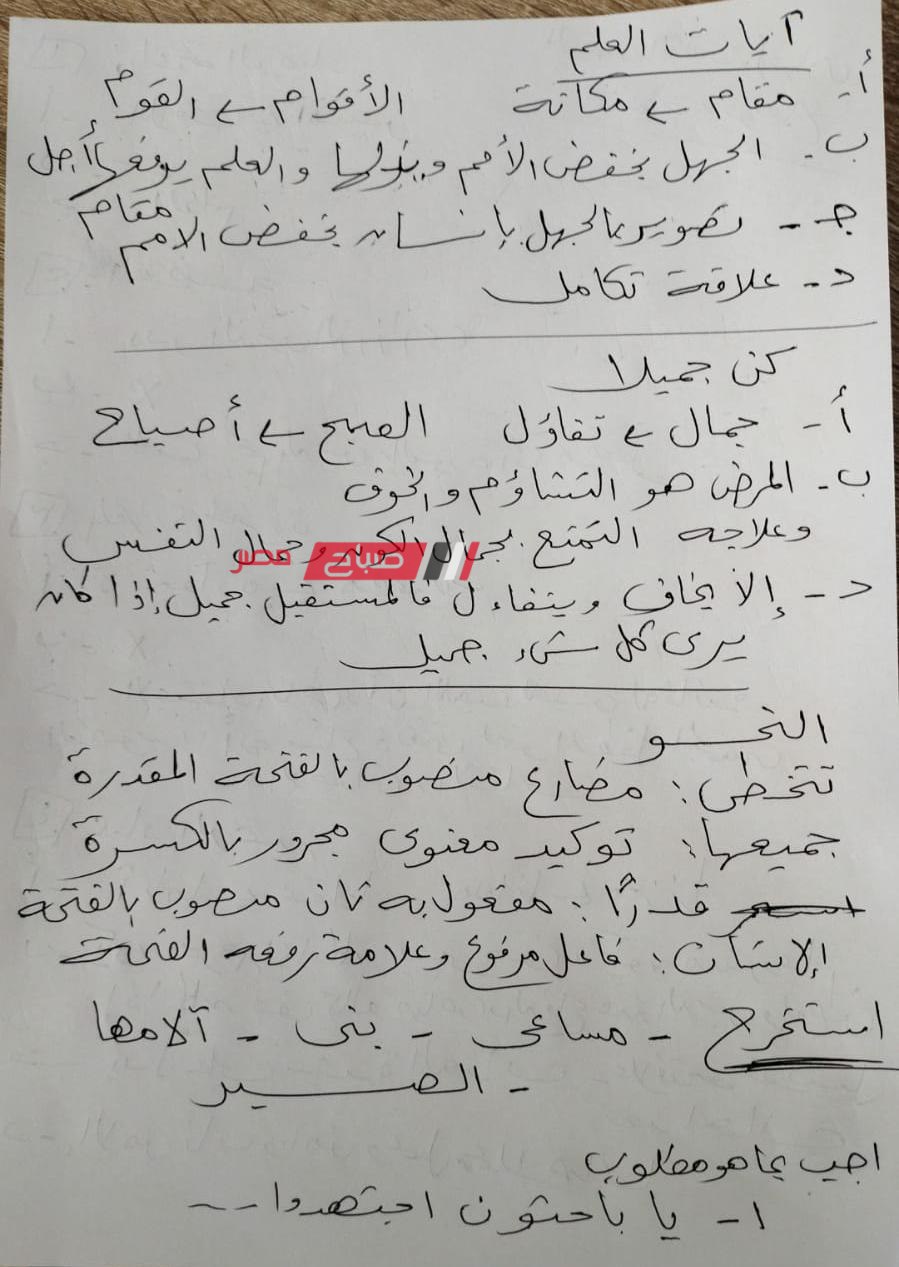 آيات العلم
أ- مقام ← مكانة الأقوام ← القوم
ب- الجهل يخفض الأمم ويذلها والعلم يرفعها أجل مقام
جـ- تصوير بالجهل بإنسان يخفض الامم
د- علاقة تكامل
كن جميلا
أ- جمال ← تفاؤل الصبح ← أصباح
ب- المرض هو التشاؤم والخوف
وعلاجه التمتع بجمال الكون وجمال النفس
صباح مصر
د- إلا يخاف ويتفاءل فالمستقبل جميل إذا كان
يرى كل شىء جميل
النحو
تتخطى: مضارع منصوب بالفتحة المقدرة
جميعها: توكيد معنوى مجرور بالكسرة
قدرًا: مفعول به ثان منصوب بالفتحة
الإنسان: فاعل مرفوع وعلامة رفعه الفتحة
استخرج - مساعى - بنى - آلامها
- الصبر
اجيب بما هو مطلوب
١- يا باحثون اجتهدوا --